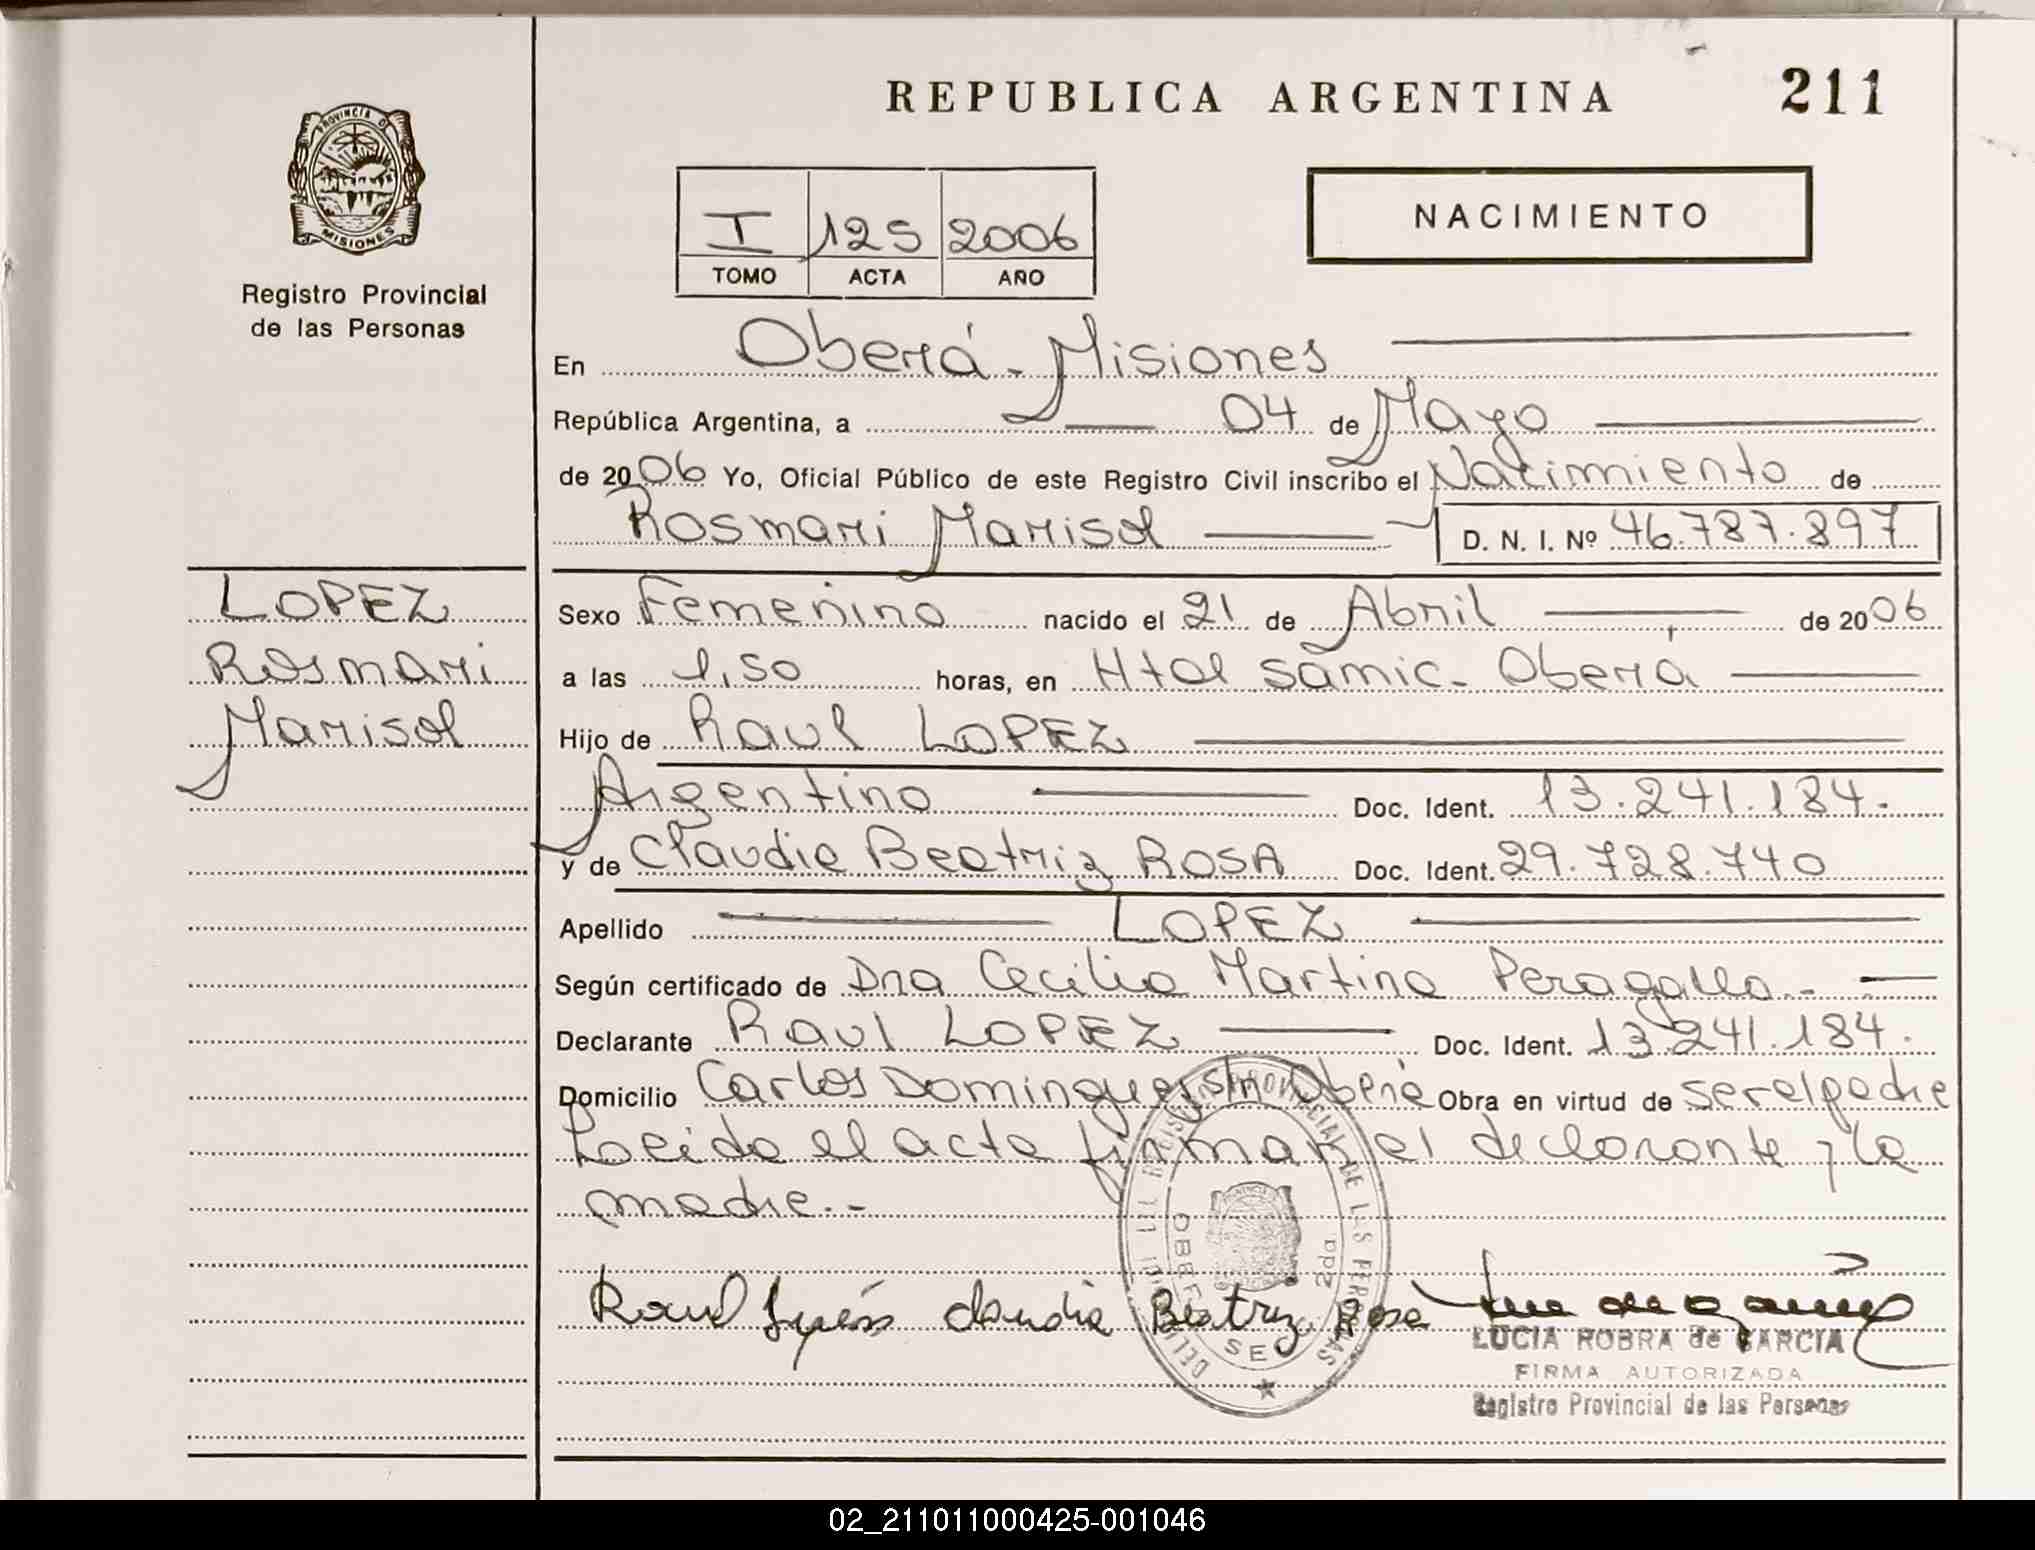 REPUBLICA ARGENTINA
211
PROVINCIA DE
MISIONES
Registro Provincial
de las Personas
I 125 2006
TOMO ACTA AÑO
NACIMIENTO
En Oberá - Misiones
República Argentina, a 04 de Mayo
de 2006 Yo, Oficial Público de este Registro Civil inscribo el Nacimiento de
Rosmari Marisol D. N. I. Nº 46.787.897
LOPEZ
Rosmari
Marisol
Sexo Femenino nacido el 21 de Abril de 2006
a las 1,50 horas, en Htal samic - Oberá
Hijo de Raul LOPEZ
Argentino Doc. Ident. 13.241.184.
y de Claudia Beatriz ROSA Doc. Ident. 29.728.740
Apellido LOPEZ
Según certificado de Dra Cecilia Martina Peragallo.-
Declarante Raul LOPEZ Doc. Ident. 13.241.184.
Domicilio Carlos Domingues s/n Oberá Obra en virtud de ser el padre
Leida el acta firman el declarante y la
madre.-
Raul claudia Beatriz Rosa
LUCIA ROBRA de GARCIA
FIRMA AUTORIZADA
Registro Provincial de las Personas
REGISTRO PROVINCIAL DE LAS PERSONAS
2da
02_211011000425-001046